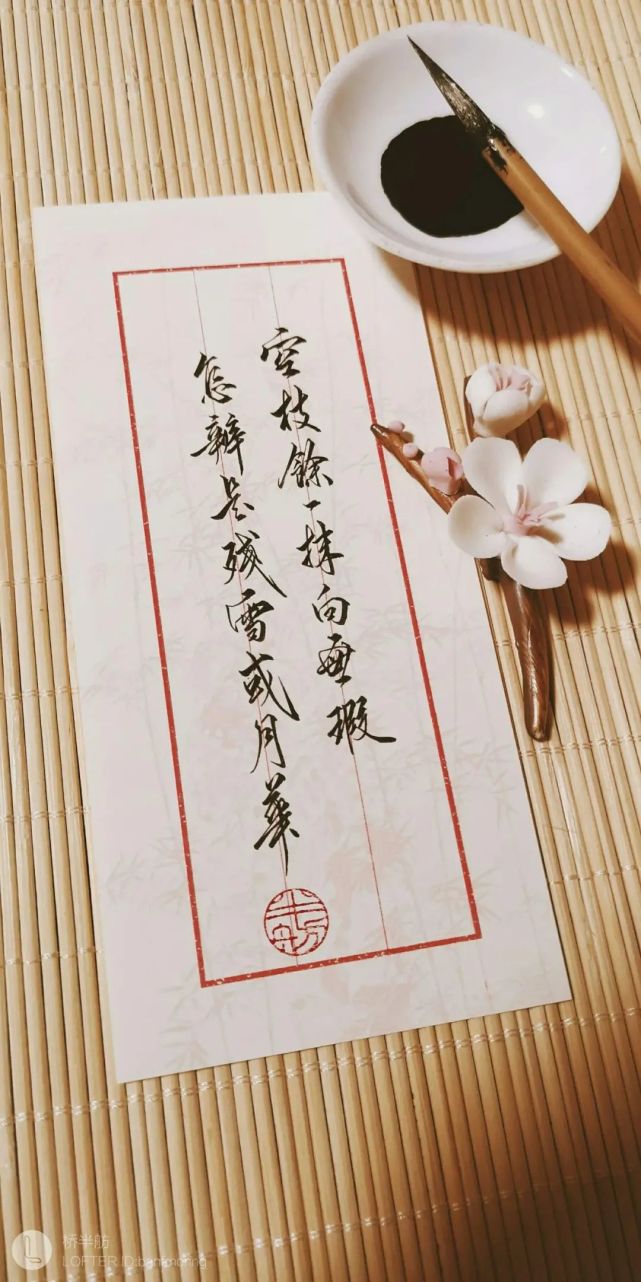 空枝餘一抹白無瑕
怎辨是殘雪或月華
半舫
桥半舫
LOFTER ID:banmoring